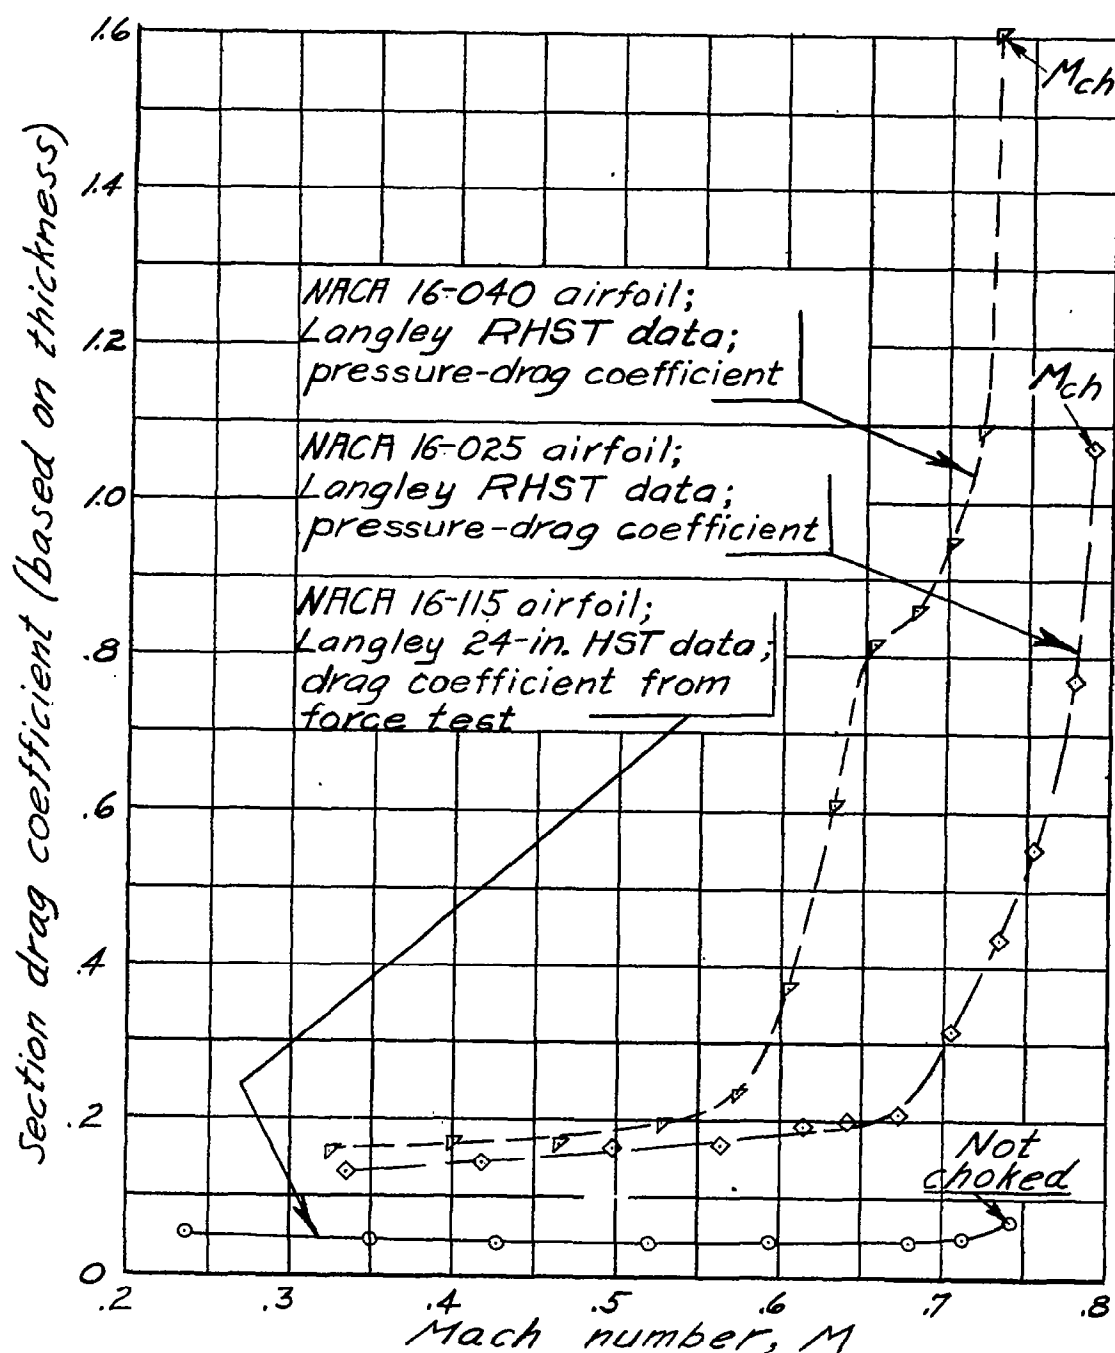 Section drag coefficient (based on thickness)
1.6
1.4
1.2
1.0
.8
.6
.4
.2
0
Mch
NACA 16-040 airfoil;
Langley RHST data;
pressure-drag coefficient
Mch
NACA 16-025 airfoil;
Langley RHST data;
pressure-drag coefficient
NACA 16-115 airfoil;
Langley 24-in. HST data;
drag coefficient from
force test
Not
choked
.2 .3 .4 .5 .6 .7 .8
Mach number, M